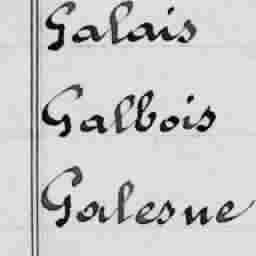 Galais
Galbois
Galesne